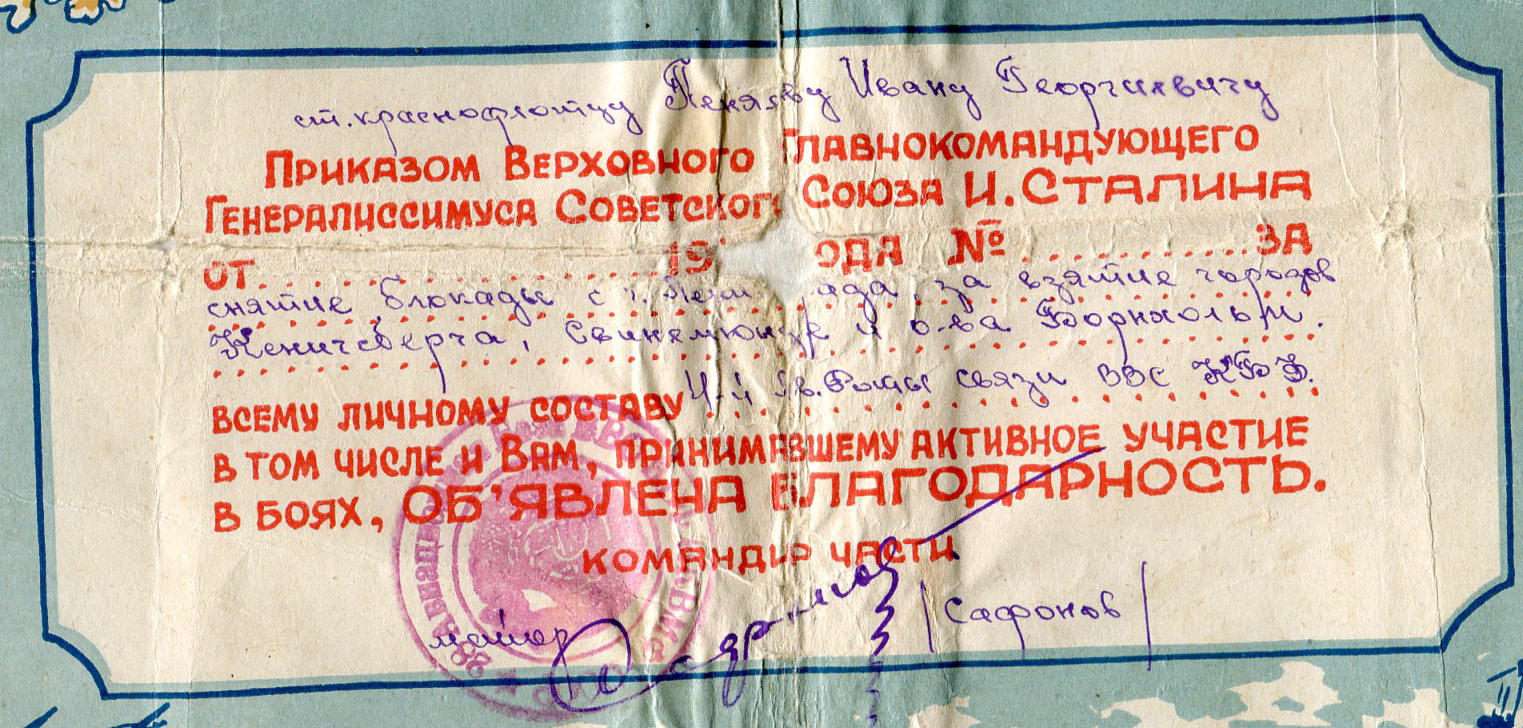 ст. краснофлотцу Пеняеву Ивану Георгиевичу
Приказом Верховного Главнокомандующего
Генералиссимуса Советского Союза И. Сталина
от ... 19 ода № ... за
снятие блокады с г. Лен ада, за взятие городов
Кенигсберга, Свинемюнде и о-ва Борнхольм.
всему личному составу 4-й Гв. Роты связи ВВС КБФ.
в том числе и Вам, принимавшему активное участие
в боях, об'явлена благодарность.
командир части
майор /Сафонов/